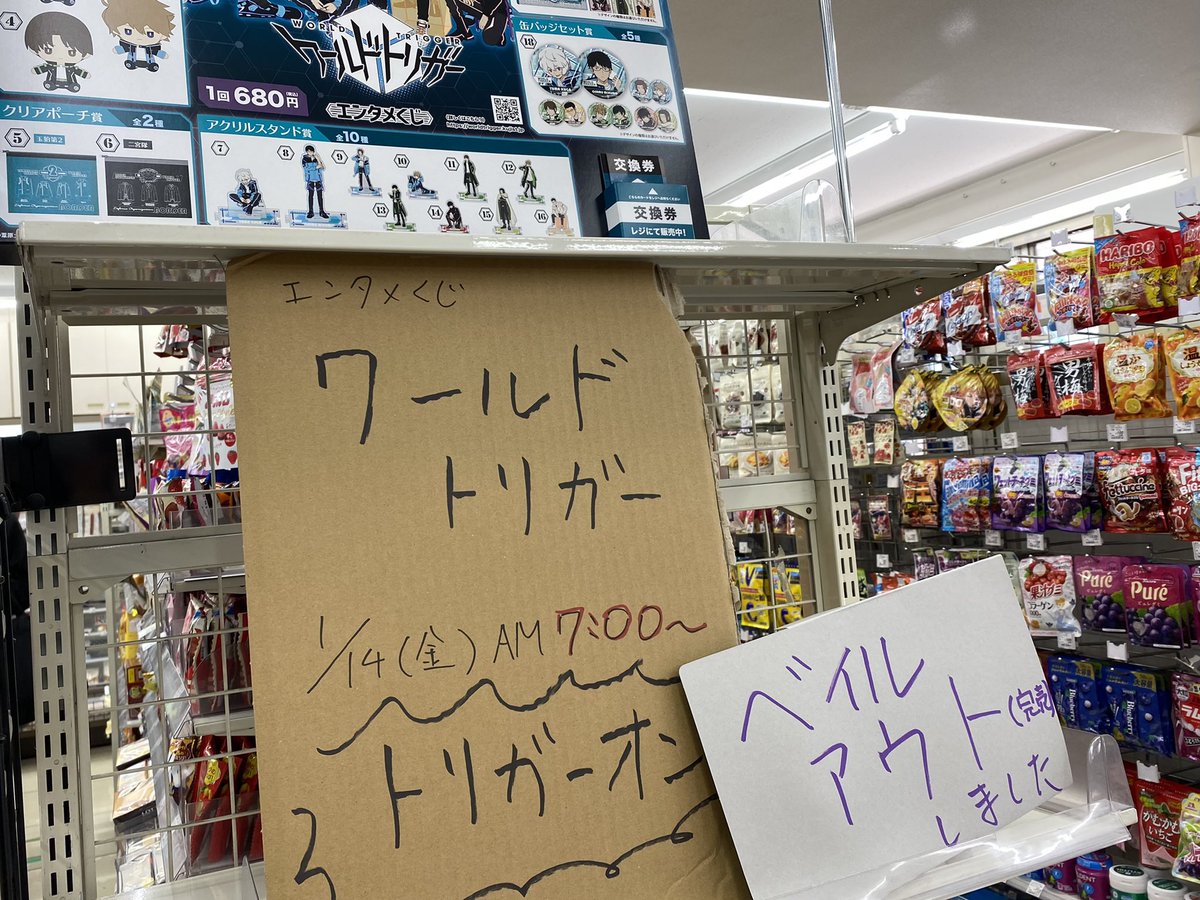 4
クリアポーチ賞 全2種
5 玉狛第2
6 二宮隊
WORLD TRIGGER
ワールドトリガー
1回680円
エンタメくじ
アクリルスタンド賞 全10種
7
8
9
10
11
12
13
14
15
16
缶バッジセット賞 全5種
18
交換券
交換券
レジにて販売中!
エンタメくじ
ワールド
トリガー
1/14(金) AM 7:00～
トリガーオン
ベイル
アウト(完売)
しました
HARIBO
男梅
男梅
Fettuccine
果汁グミ
Puré
Puré
Blueberry
かむかむ
いちご